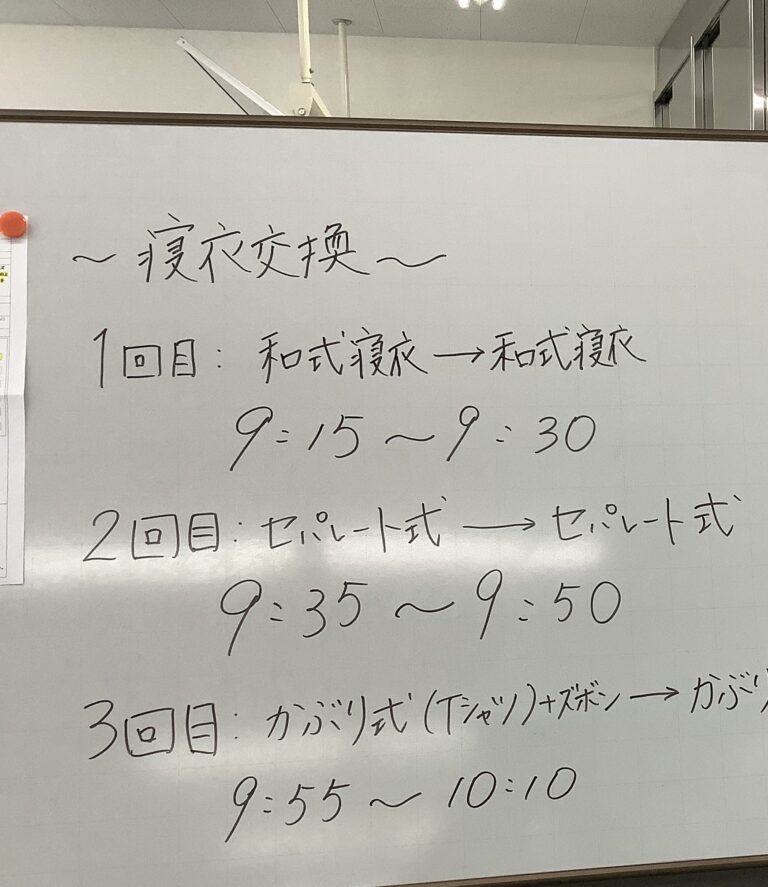 ～寝衣交換～
1回目: 和式寝衣→和式寝衣
9:15～9:30
2回目: セパレート式→セパレート式
9:35～9:50
3回目: かぶり式(Tシャツ)+ズボン→かぶり
9:55～10:10